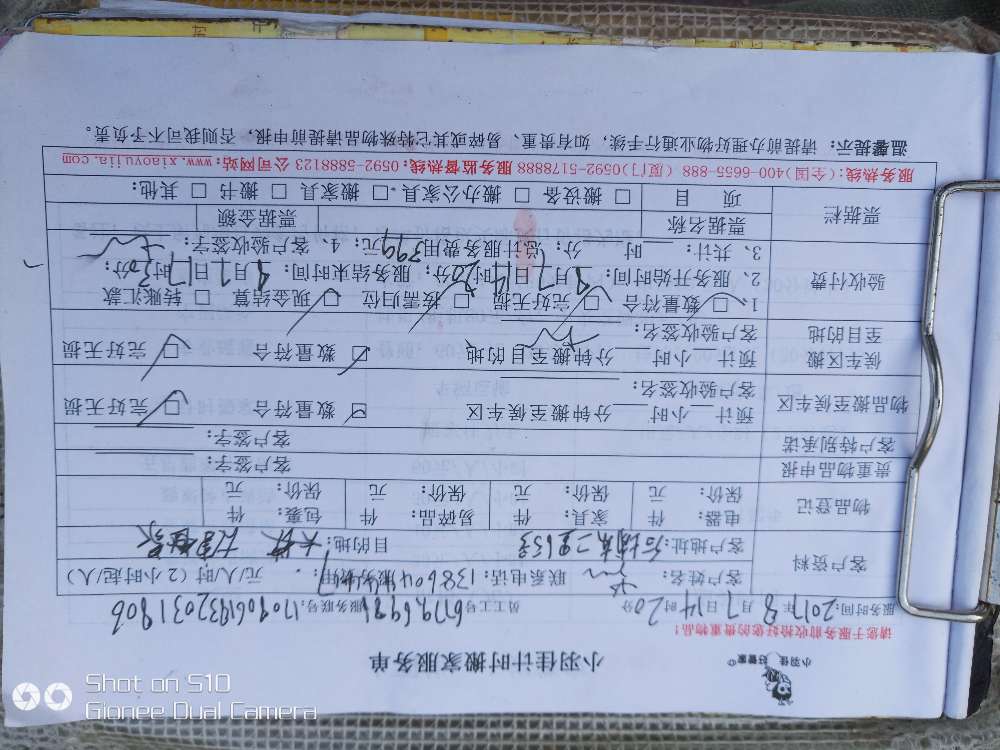 小羽佳 好管家
小羽佳计时搬家服务单
请您于服务前收拾好您的贵重物品！
服务时间：2017年 月7日14时20分 员工号： 服务联号：
客户资料 客户姓名： 联系电话： 服务费用： 元/人/时（2小时起/人）
客户地址： 目的地：
物品登记 电器： 件 家具： 件 易碎品： 件 包裹： 件
保价： 元 保价： 元 保价： 元 保价： 元
贵重物品申报 客户签字：
客户特别承诺 客户签字：
物品搬至侯车区 预计 小时 分钟搬至侯车区 数量符合 完好无损
客户验收签名：
侯车区搬至目的地 预计 小时 分钟搬至目的地 数量符合 完好无损
客户验收签名：
验收付费 1、 数量符合 完好无损 按需归位 现金结算 转账汇款
2、服务开始时间：9月7日14时20分；服务结束时间：9月7日17时30分；
3、共计： 时 分；总计服务费用399元；4、客户验收签字：
票据栏 票据名称 票据金额
项 目 搬设备 搬办公家具 搬家具 搬书 其他：
服务热线：(全国)400-6655-888 (厦门)0592-5178888 服务监督热线：0592-5888123 公司网站：www.xiaoyujia.com
温馨提示：请提前办理好物业通行手续，如有贵重、易碎或其它特殊物品请提前申报，否则我司不予负责。
Shot on S10
Gionee Dual Camera